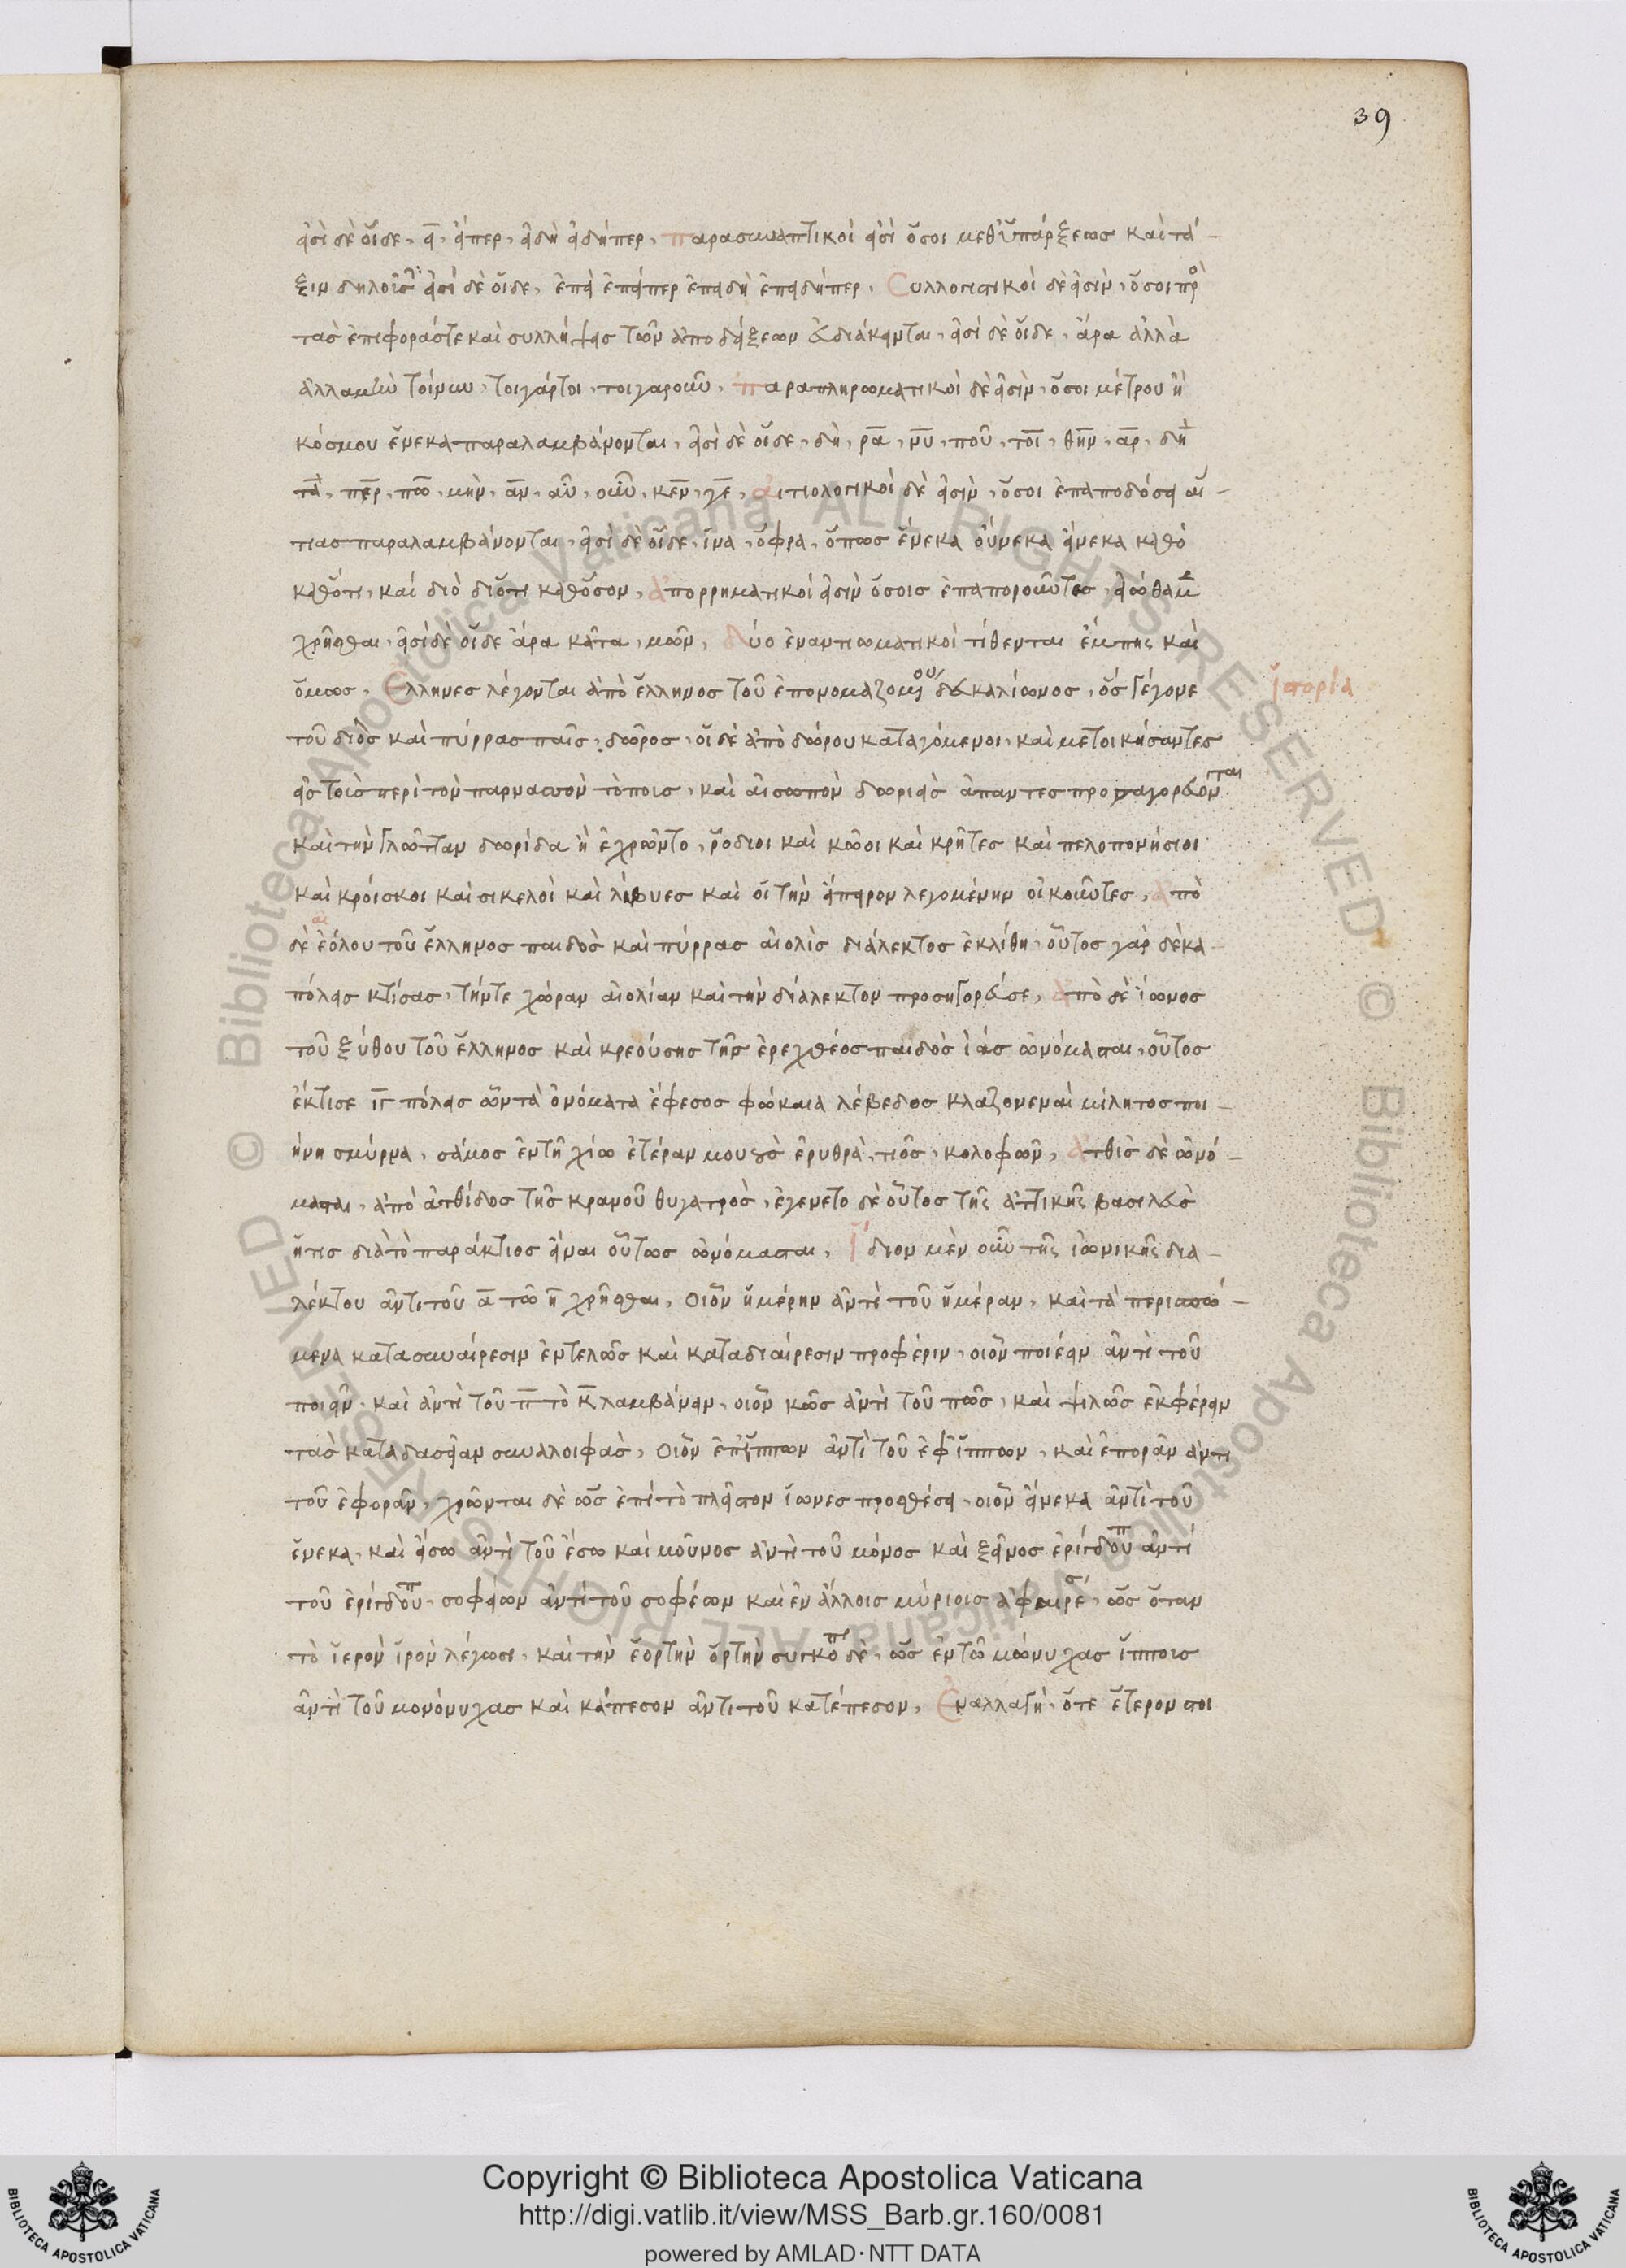 39
εἰσὶ δὲ οἵδε, εἰ, εἴπερ, εἰδὴ εἰδήπερ, παρασυναπτικοί εἰσὶ ὅσοι μεθ' ὑπάρξεως καὶ τά-
ξιν δηλοῦσι εἰσὶ δὲ οἵδε, ἐπεὶ ἐπείπερ ἐπειδὴ ἐπειδήπερ, Συλλογιστικοί δὲ εἰσὶν, ὅσοι πρὸ
τὰς ἐπιφοράς τε καὶ συλλήψεις τῶν ἀποδείξεων εὐδιάκεινται, εἰσὶ δὲ οἵδε, ἄρα ἀλλὰ
ἀλλαμὴν τοίνυν, τοιγάρτοι, τοιγαροῦν, παραπληρωματικοὶ δὲ εἰσὶν, ὅσοι μέτρου ἢ
κόσμου ἕνεκα παραλαμβάνονται, εἰσὶ δὲ οἵδε, δή, ρα, νυ, που, τοι, θην, αρ, δῆ
τα, περ, πω, μὴν, αν, αὖ, οὖν, κεν, γε, αἰτιολογικοὶ δὲ εἰσὶν, ὅσοι ἐπαποδόσει αἰ-
τίας παραλαμβάνονται, εἰσὶ δὲ οἵδε, ἵνα, ὄφρα, ὅπως ἕνεκα οὕνεκα εἵνεκα καθό
καθότι, καὶ διὸ διότι καθόσον, ἀπορρηματικοί εἰσὶν ὅσοις ἐπαποροῦντες, εἰώθαμεν
χρῆσθαι, εἰσὶ δὲ οἵδε ἆρα κᾆτα, μῶν, δύο ἐναντιωματικοὶ τίθενται ἔμπης καὶ
ὅμως, Ἕλληνες λέγονται ἀπὸ ἕλληνος τοῦ ἐπονομαζομένου δευκαλίωνος, ὅς γέγονε
ἱστορία
τοῦ διὸς καὶ πύρρας παῖς, δῶρος, οἱ δὲ ἀπὸ δώρου καταγόμενοι, καὶ μετοικήσαντες
εἰς τοὺς περὶ τὸν παρνασσὸν τόποις, καὶ αἰσωπὸν δωριεῖς ἅπαντες προσαγορεύονται
καὶ τὴν γλῶτταν δωρίδα ἣ ἐχρῶντο, ῥόδιοι καὶ κῶοι καὶ κρῆτες καὶ πελοπονήσιοι
καὶ κρόισκοι καὶ σικελοὶ καὶ λίβυες καὶ οἱ τὴν ἤπειρον λεγομένην οἰκοῦντες, ἀπὸ
δὲ αἰόλου τοῦ ἕλληνος παιδὸς καὶ πύρρας αἰολὶς διάλεκτος ἐκλίθη, οὗτος γὰρ δέκα
πόλεις κτίσας, τήντε χώραν αἰολίαν καὶ τὴν διάλεκτον προσηγόρευσε, ἀπὸ δὲ ἴωνος
τοῦ ξύθου τοῦ ἕλληνος καὶ κρεούσης τῆς ἐρεχθέος παιδὸς ἰάς ὠνόμασται, οὗτος
ἔκτισε ιγ πόλεις ὧν τὰ ὀνόματα ἔφεσος φώκαια λέβεδος κλαζομεναὶ μίλητος πρι-
ήνη σμύρνα, σάμος ἐν τῇ χίω ἑτέραν μουσὸ ἐρυθρὰ, τιὸς, κολοφῶν, ἀτθὶς δὲ ὠνό-
μασται, ἀπὸ ἀτθίδος τῆς κραναοῦ θυγατρὸς, ἐγένετο δὲ οὗτος τῆς ἀττικῆς βασιλεὺς
ἥτις διὰ τὸ παράκτιος εἶναι οὕτως ὠνόμασται, ἴδιον μὲν οὖν τῆς ἰωνικῆς δια-
λέκτου ἀντὶ τοῦ α τῶ η χρῆσθαι, οἷον ἡμέρην ἀντὶ τοῦ ἡμέραν, καὶ τὰ περισπώ-
μενα κατασυναίρεσιν ἐντελῶς καὶ καταδιαίρεσιν προφέριν, οἷον ποιέειν ἀντὶ τοῦ
ποιεῖν, καὶ ἀντὶ τοῦ π τὸ κ λαμβάνειν, οἷον κῶς ἀντὶ τοῦ πῶς, καὶ ψιλῶς ἐκφέρειν
τὰς καταδασεῖαν συναλοιφὰς, οἷον ἐπίππων ἀντὶ τοῦ ἐφίππων, καὶ ἐπορᾶν ἀντὶ
τοῦ ἐφορᾶν, χρῶνται δὲ ὡς ἐπὶ τὸ πλεῖστον ἴωνες προσθέσει, οἷον εἵνεκα ἀντὶ τοῦ
ἕνεκα, καὶ εἴσω ἀντὶ τοῦ ἔσω καὶ μοῦνος ἀντὶ τοῦ μόνος καὶ ξεῖνος ἐρίγδουπ ἀντὶ
τοῦ ἐρίγδουπ, σοφείων ἀντὶ τοῦ σοφέων καὶ ἐν ἄλλοις μύριοις ἀφαιρέσ, ὡς ὅταν
τὸ ἱερὸν ἱρὸν λέγωσι, καὶ τὴν ἑορτὴν ὁρτὴν συγκοπ δὲ, ὡς ἐν τῶ μώνυχας ἵπποις
ἀντὶ τοῦ μονόνυχας καὶ κάπεσον ἀντὶ τοῦ κατέπεσον, Ἐναλλαγή, ὅτε ἕτερον στοι
Copyright © Biblioteca Apostolica Vaticana
http://digi.vatlib.it/view/MSS_Barb.gr.160/0081
powered by AMLAD·NTT DATA